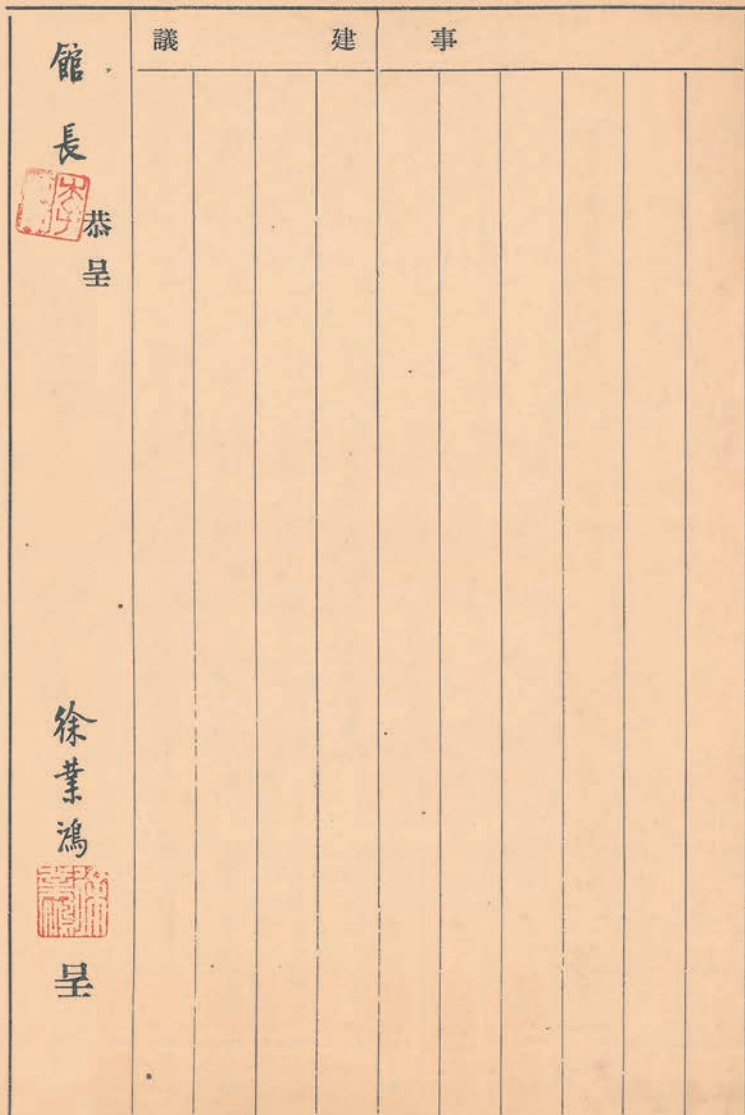 事
建議
館長 恭呈
徐業鴻 呈